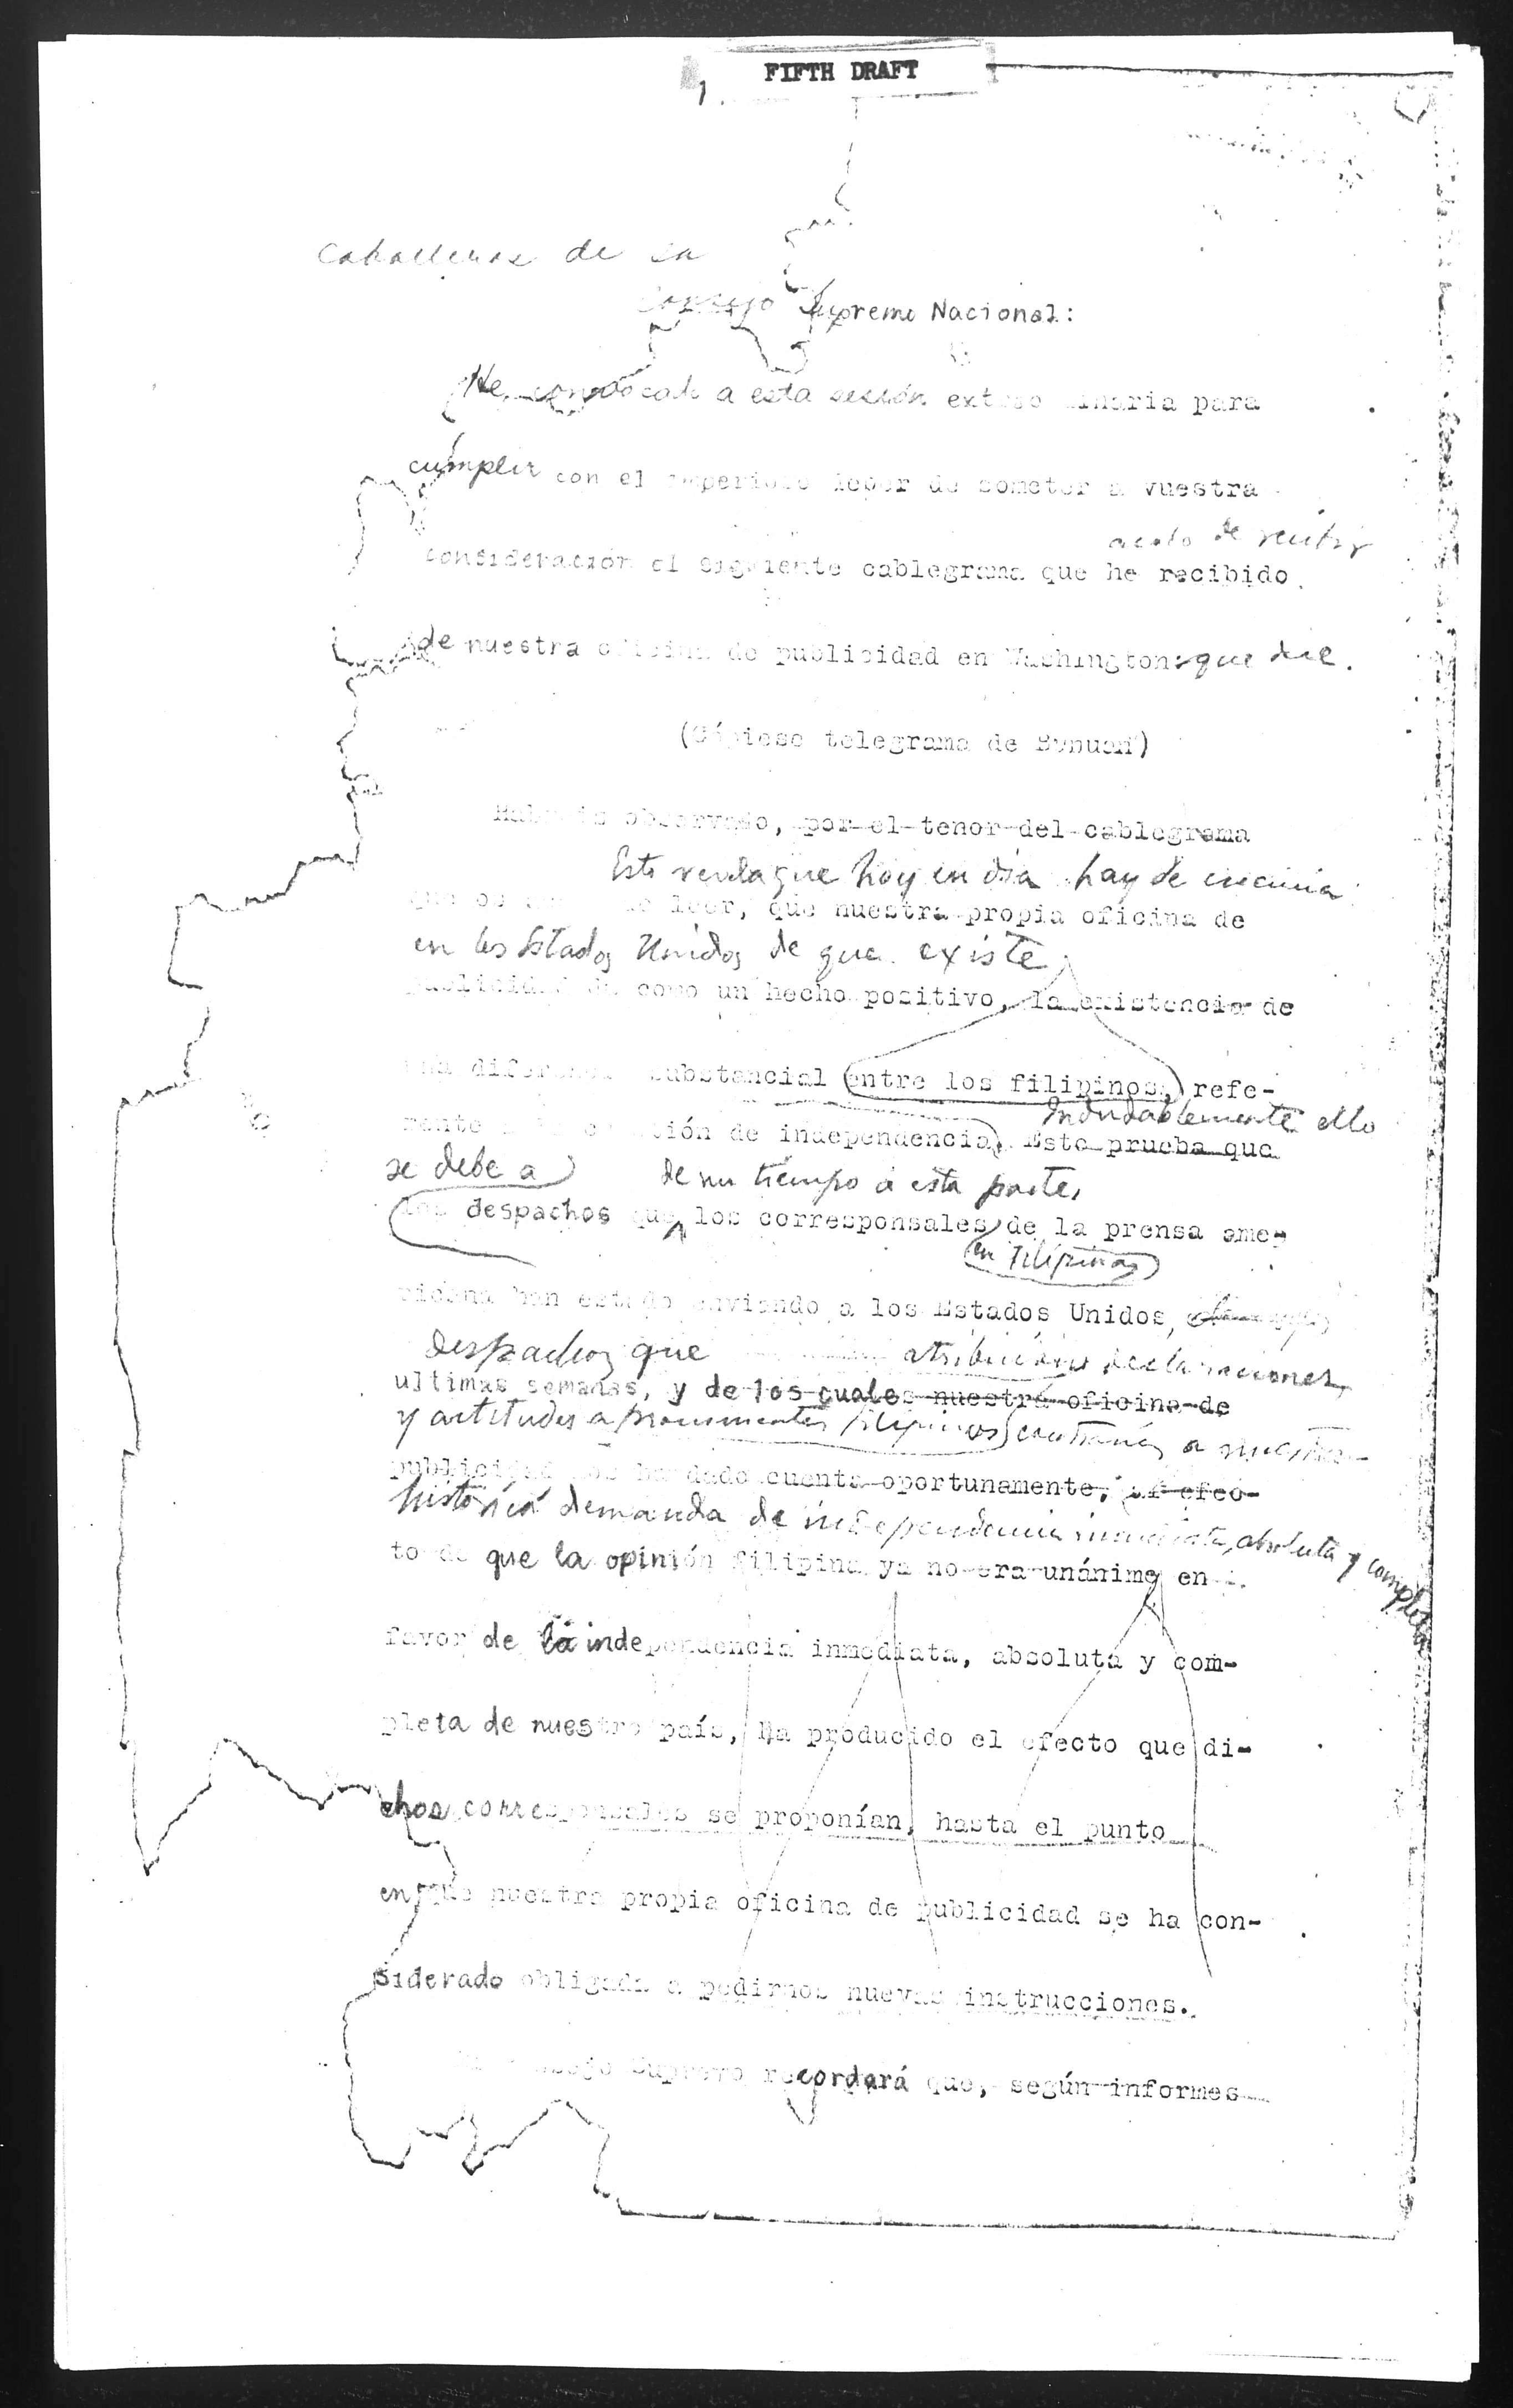 FIFTH DRAFT
Caballeros de
Consejo Supremo Nacional:
He convocado a esta sesión extraordinaria para
cumplir con el imperioso deber de someter a vuestra
acabo de recibir
consideración el siguiente cablegrama que he recibido
de nuestra oficina de publicidad en Washington: que dice.
(Cópiese telegrama de
observado, por el tenor del cablegrama
Esto revela que hoy en día hay
que os leer, que nuestra propia oficina de
en los Estados Unidos de que existe
publicidad da como un hecho positivo, la existencia de
una diferencia substancial entre los filipinos, refe-
Indudablemente ello
rente cuestión de independencia. Esto prueba que
se debe a de un tiempo a esta parte,
los despachos que los corresponsales de la prensa ame-
en Filipinas
ricana han estado enviando a los Estados Unidos,
despachos que atribuían declaraciones
ultimas semanas, y de los cuales nuestra oficina de
y actitudes a prominentes filipinos contrarias a nuestra
publicidad nos ha dado cuenta oportunamente, al efec-
histórica demanda de independencia inmediata, absoluta y completa
to de que la opinión filipina ya no era unánime en
favor de la independencia inmediata, absoluta y com-
pleta de nuestro país, ha producido el efecto que di-
chos corresponsales se proponían, hasta el punto
en que nuestra propia oficina de publicidad se ha con-
siderado obligada a pedirnos nuevas instrucciones.
Consejo Supremo recordará que, según informes